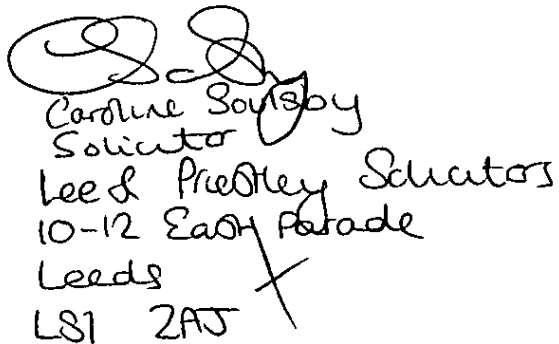 Caroline Soulsby
Solicitor
Lee & Priestley Solicitors
10-12 East Parade
Leeds
LS1 2AJ